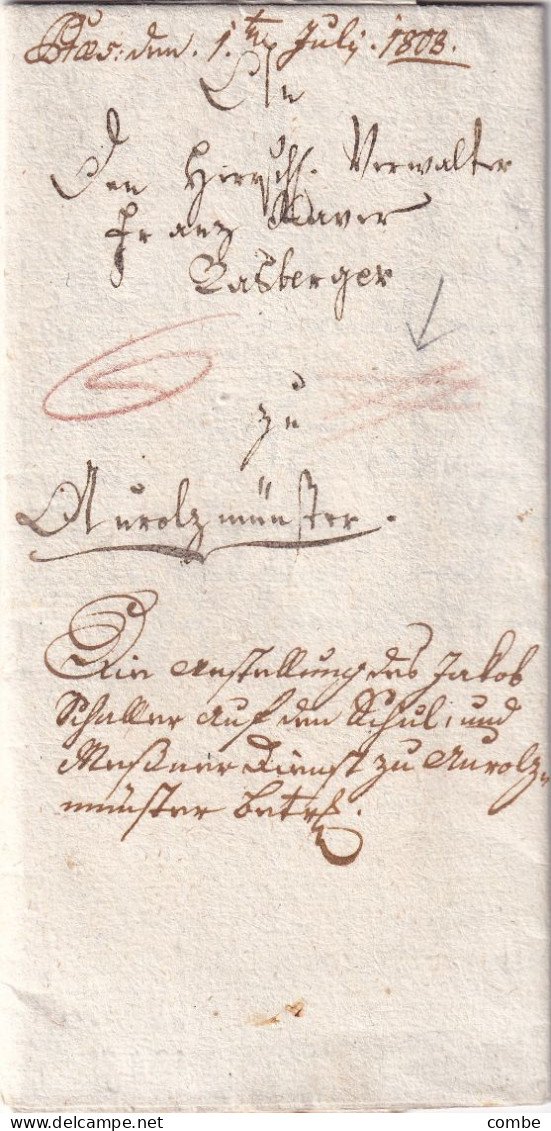 Præs: den. 1.ten July. 1808.
An
Den Herrsch. Verwalter
Franz Xaver
Gasberger
zu
Aurolzmünster.
Die Anstellung des Jakob
Schaller auf den Schul, und
Meßner Dienst zu Aurolz=
münster betrf.
www.delcampe.net
combe